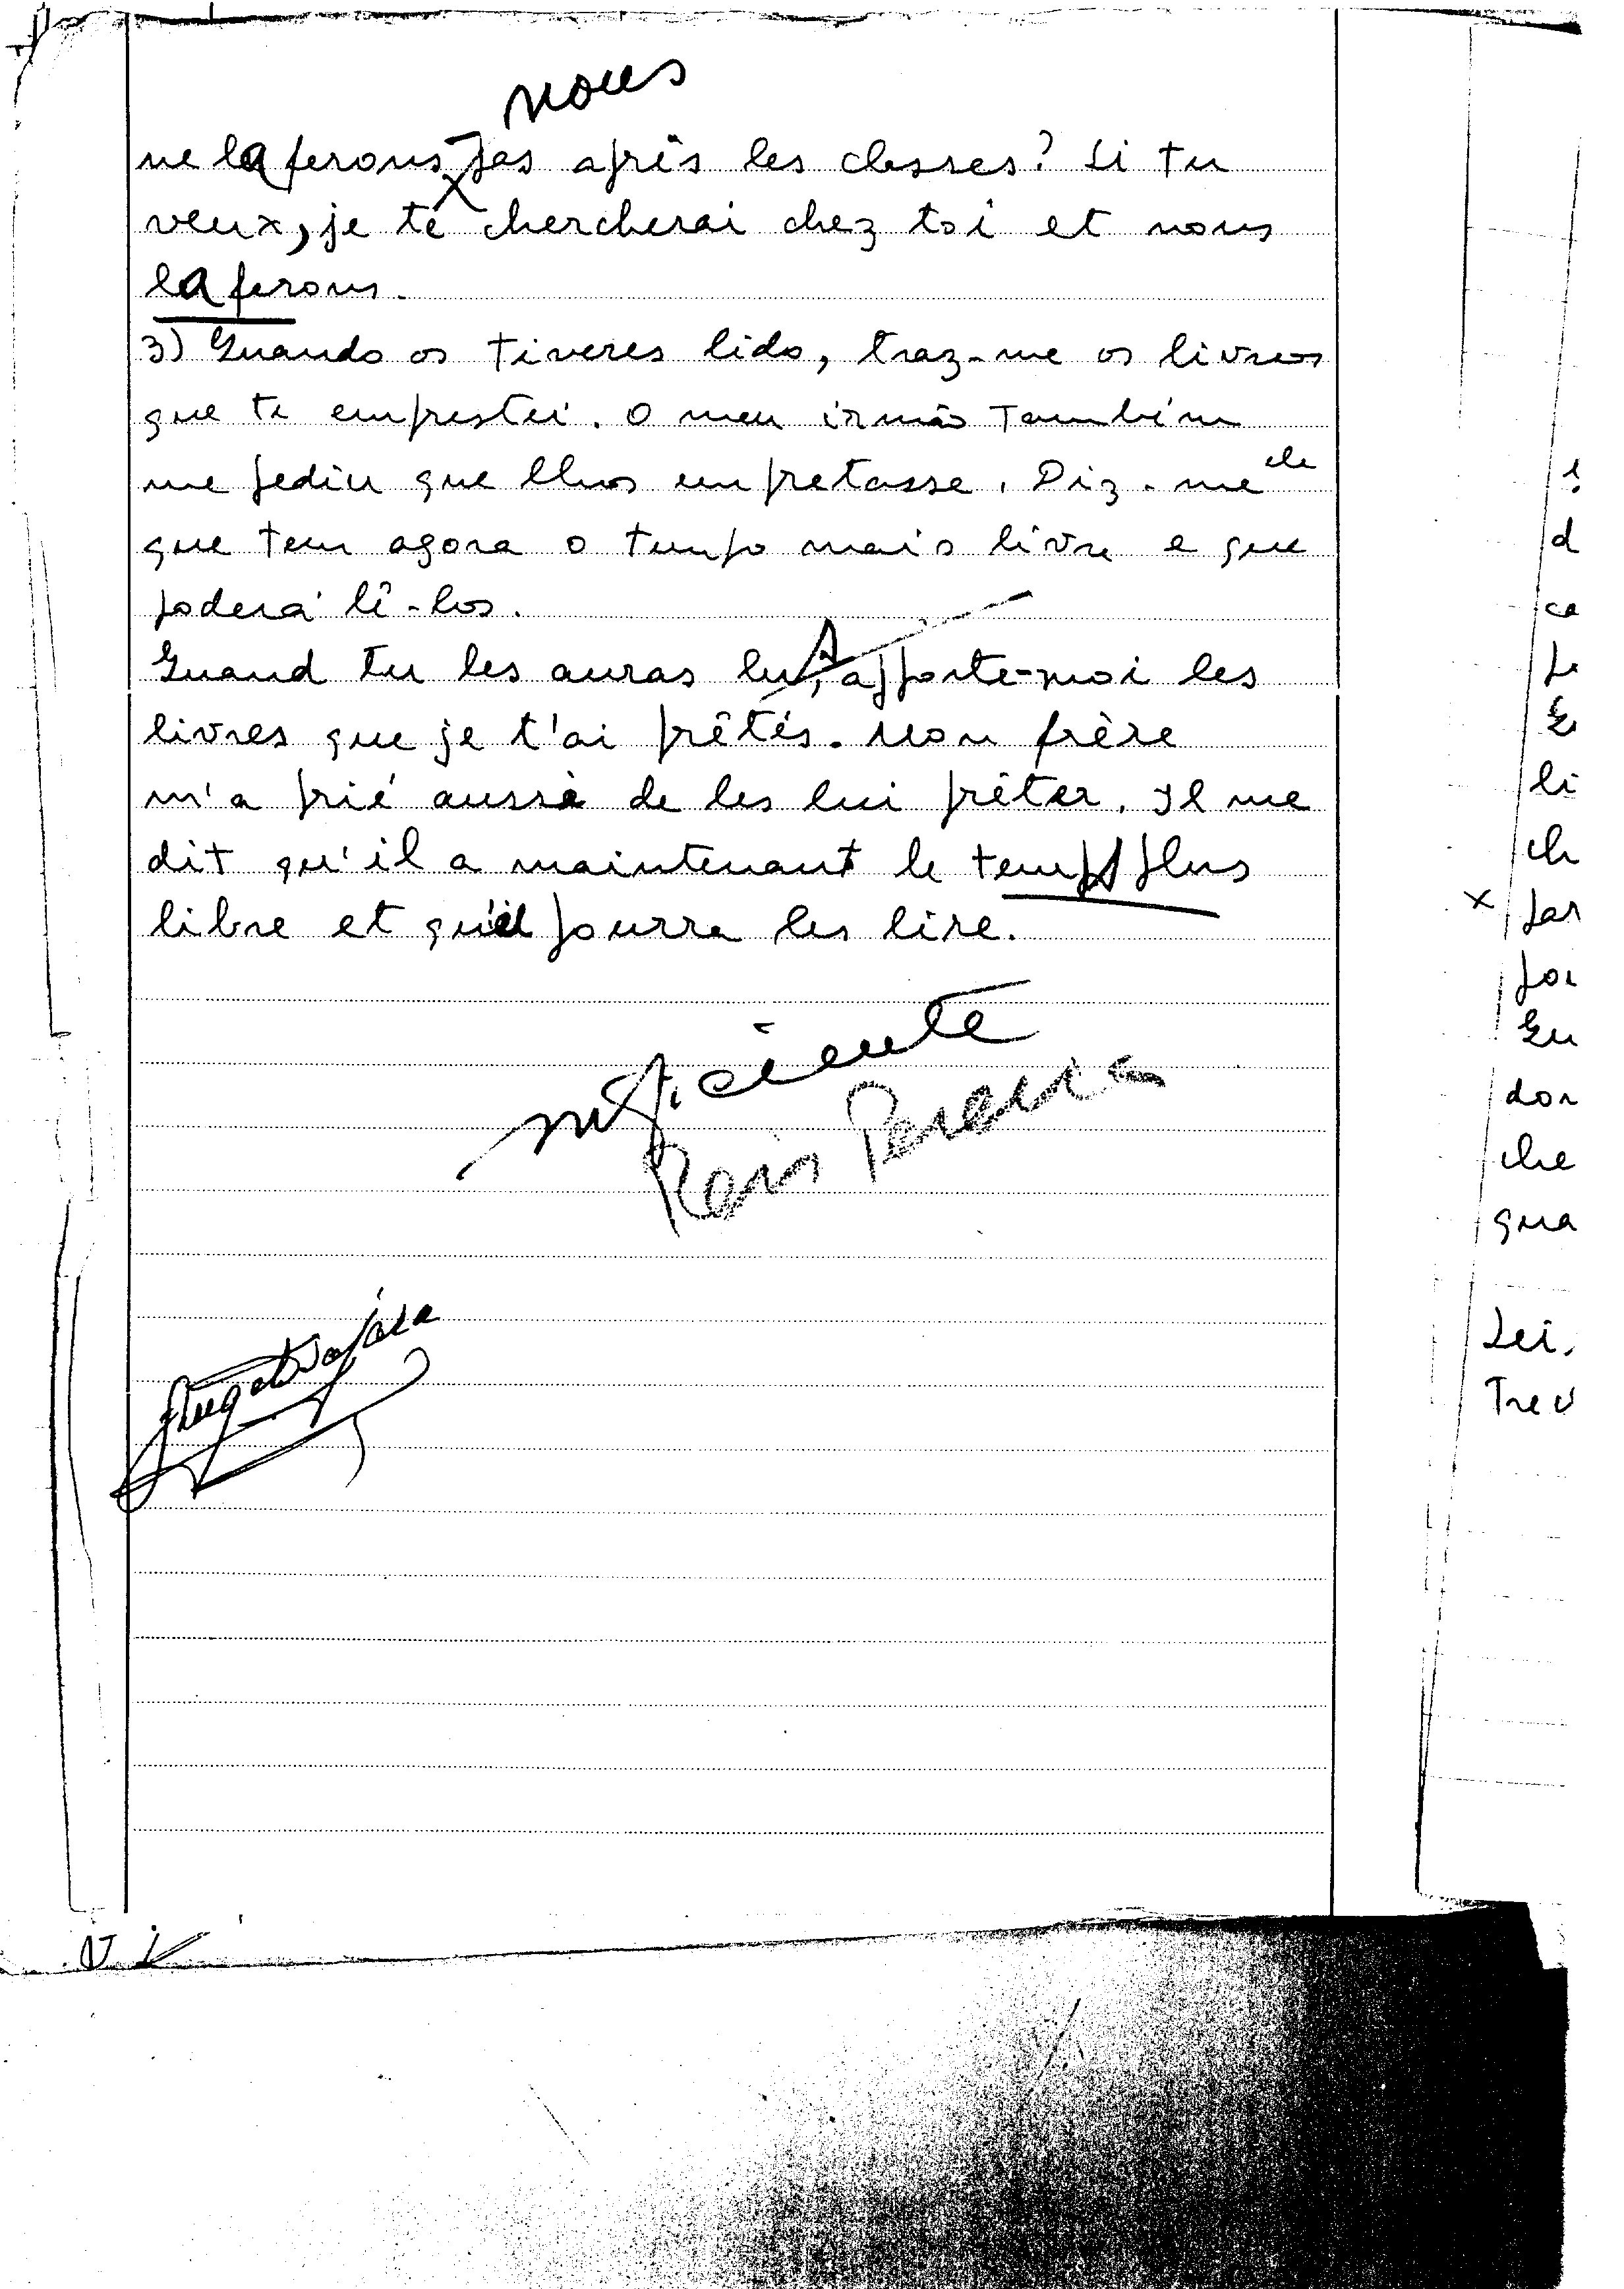 nous
ne la ferons pas après les classes? Si tu
veux, je te chercherai chez toi et nous
la ferons.
3) Quando os tiveres lido, traz-me os livros
que te emprestei. O meu irmão também
me pediu que lhos empretasse. Diz-me ele
que tem agora o tempo mais livre e que
poderá lê-los.
Quand tu les auras lus, apporte-moi les
livres que je t'ai prêtés. Mon frère
m'a prié aussi de les lui prêter. Il me
dit qu'il a maintenant le temps plus
libre et qu'il pourra les lire.
suficiente
Reis Pereira
d
ca
li
ch
x par
poi
Qu
don
che
qua
Lei.